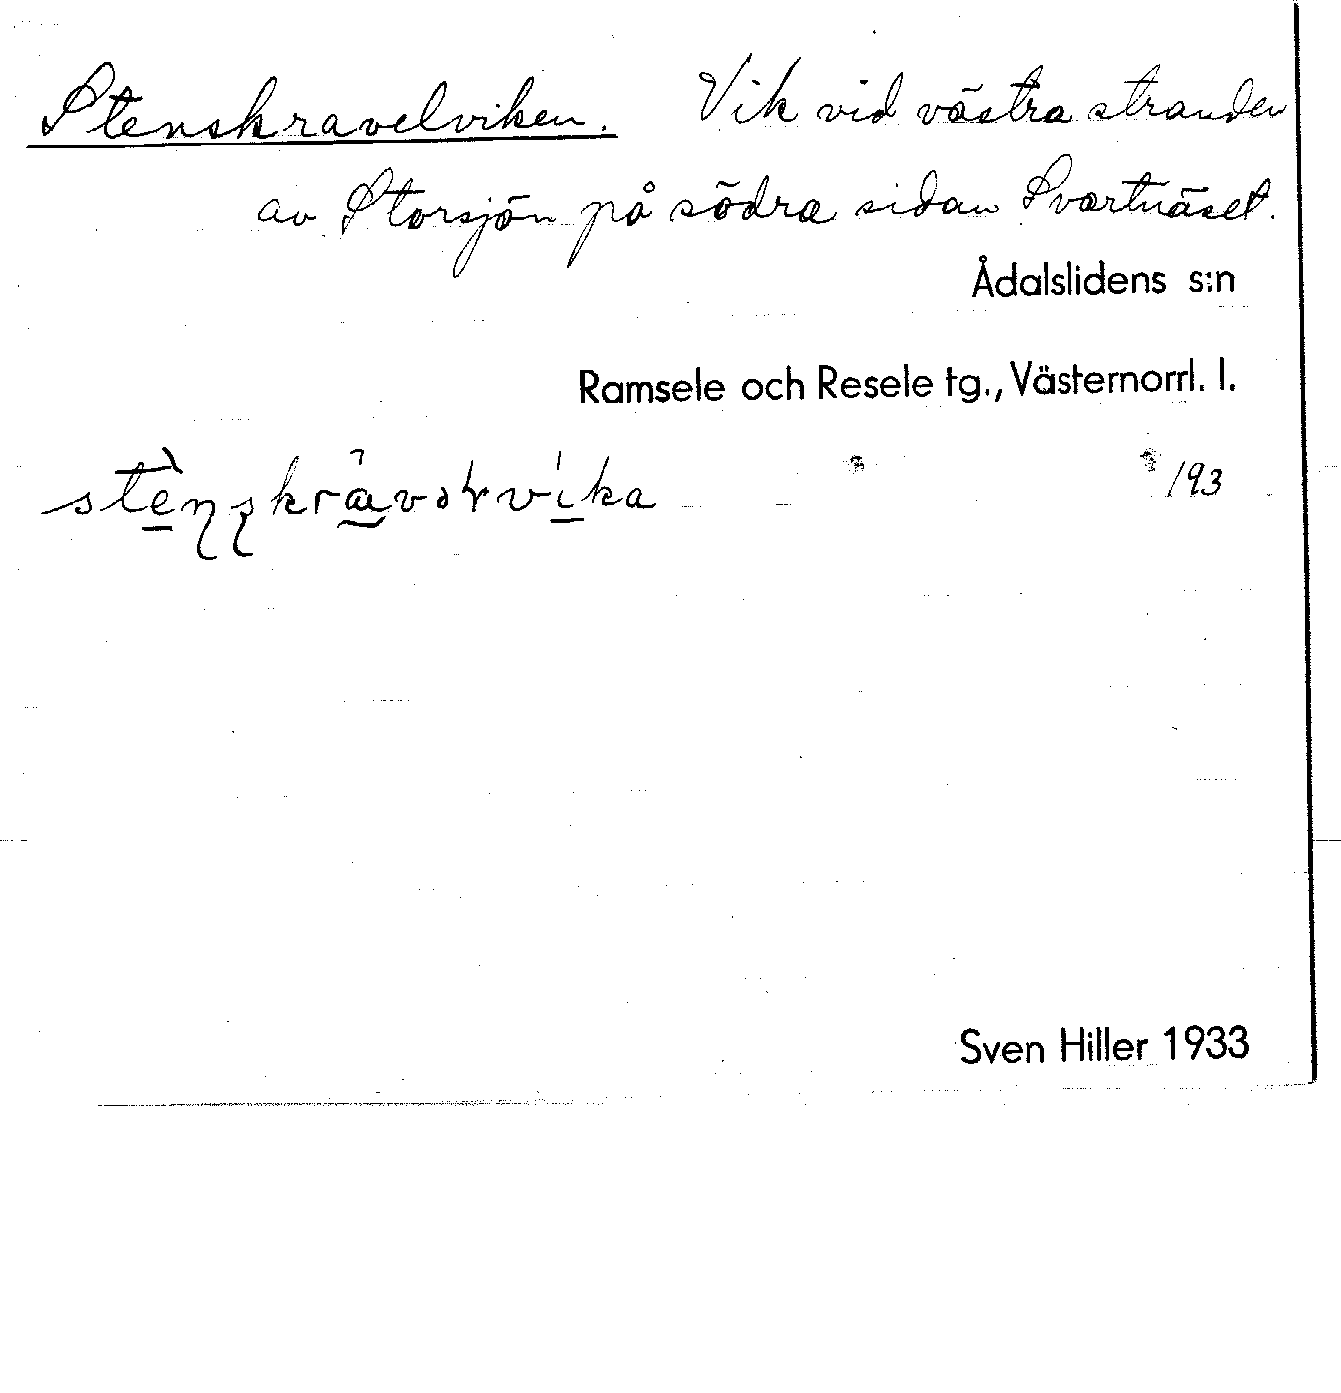 Stenskravelviken. Vik vid västra stranden
av Storsjön på södra sidan Svartnäset.
Ådalslidens s:n
Ramsele och Resele tg., Västernorrl. l.
193
Sven Hiller 1933